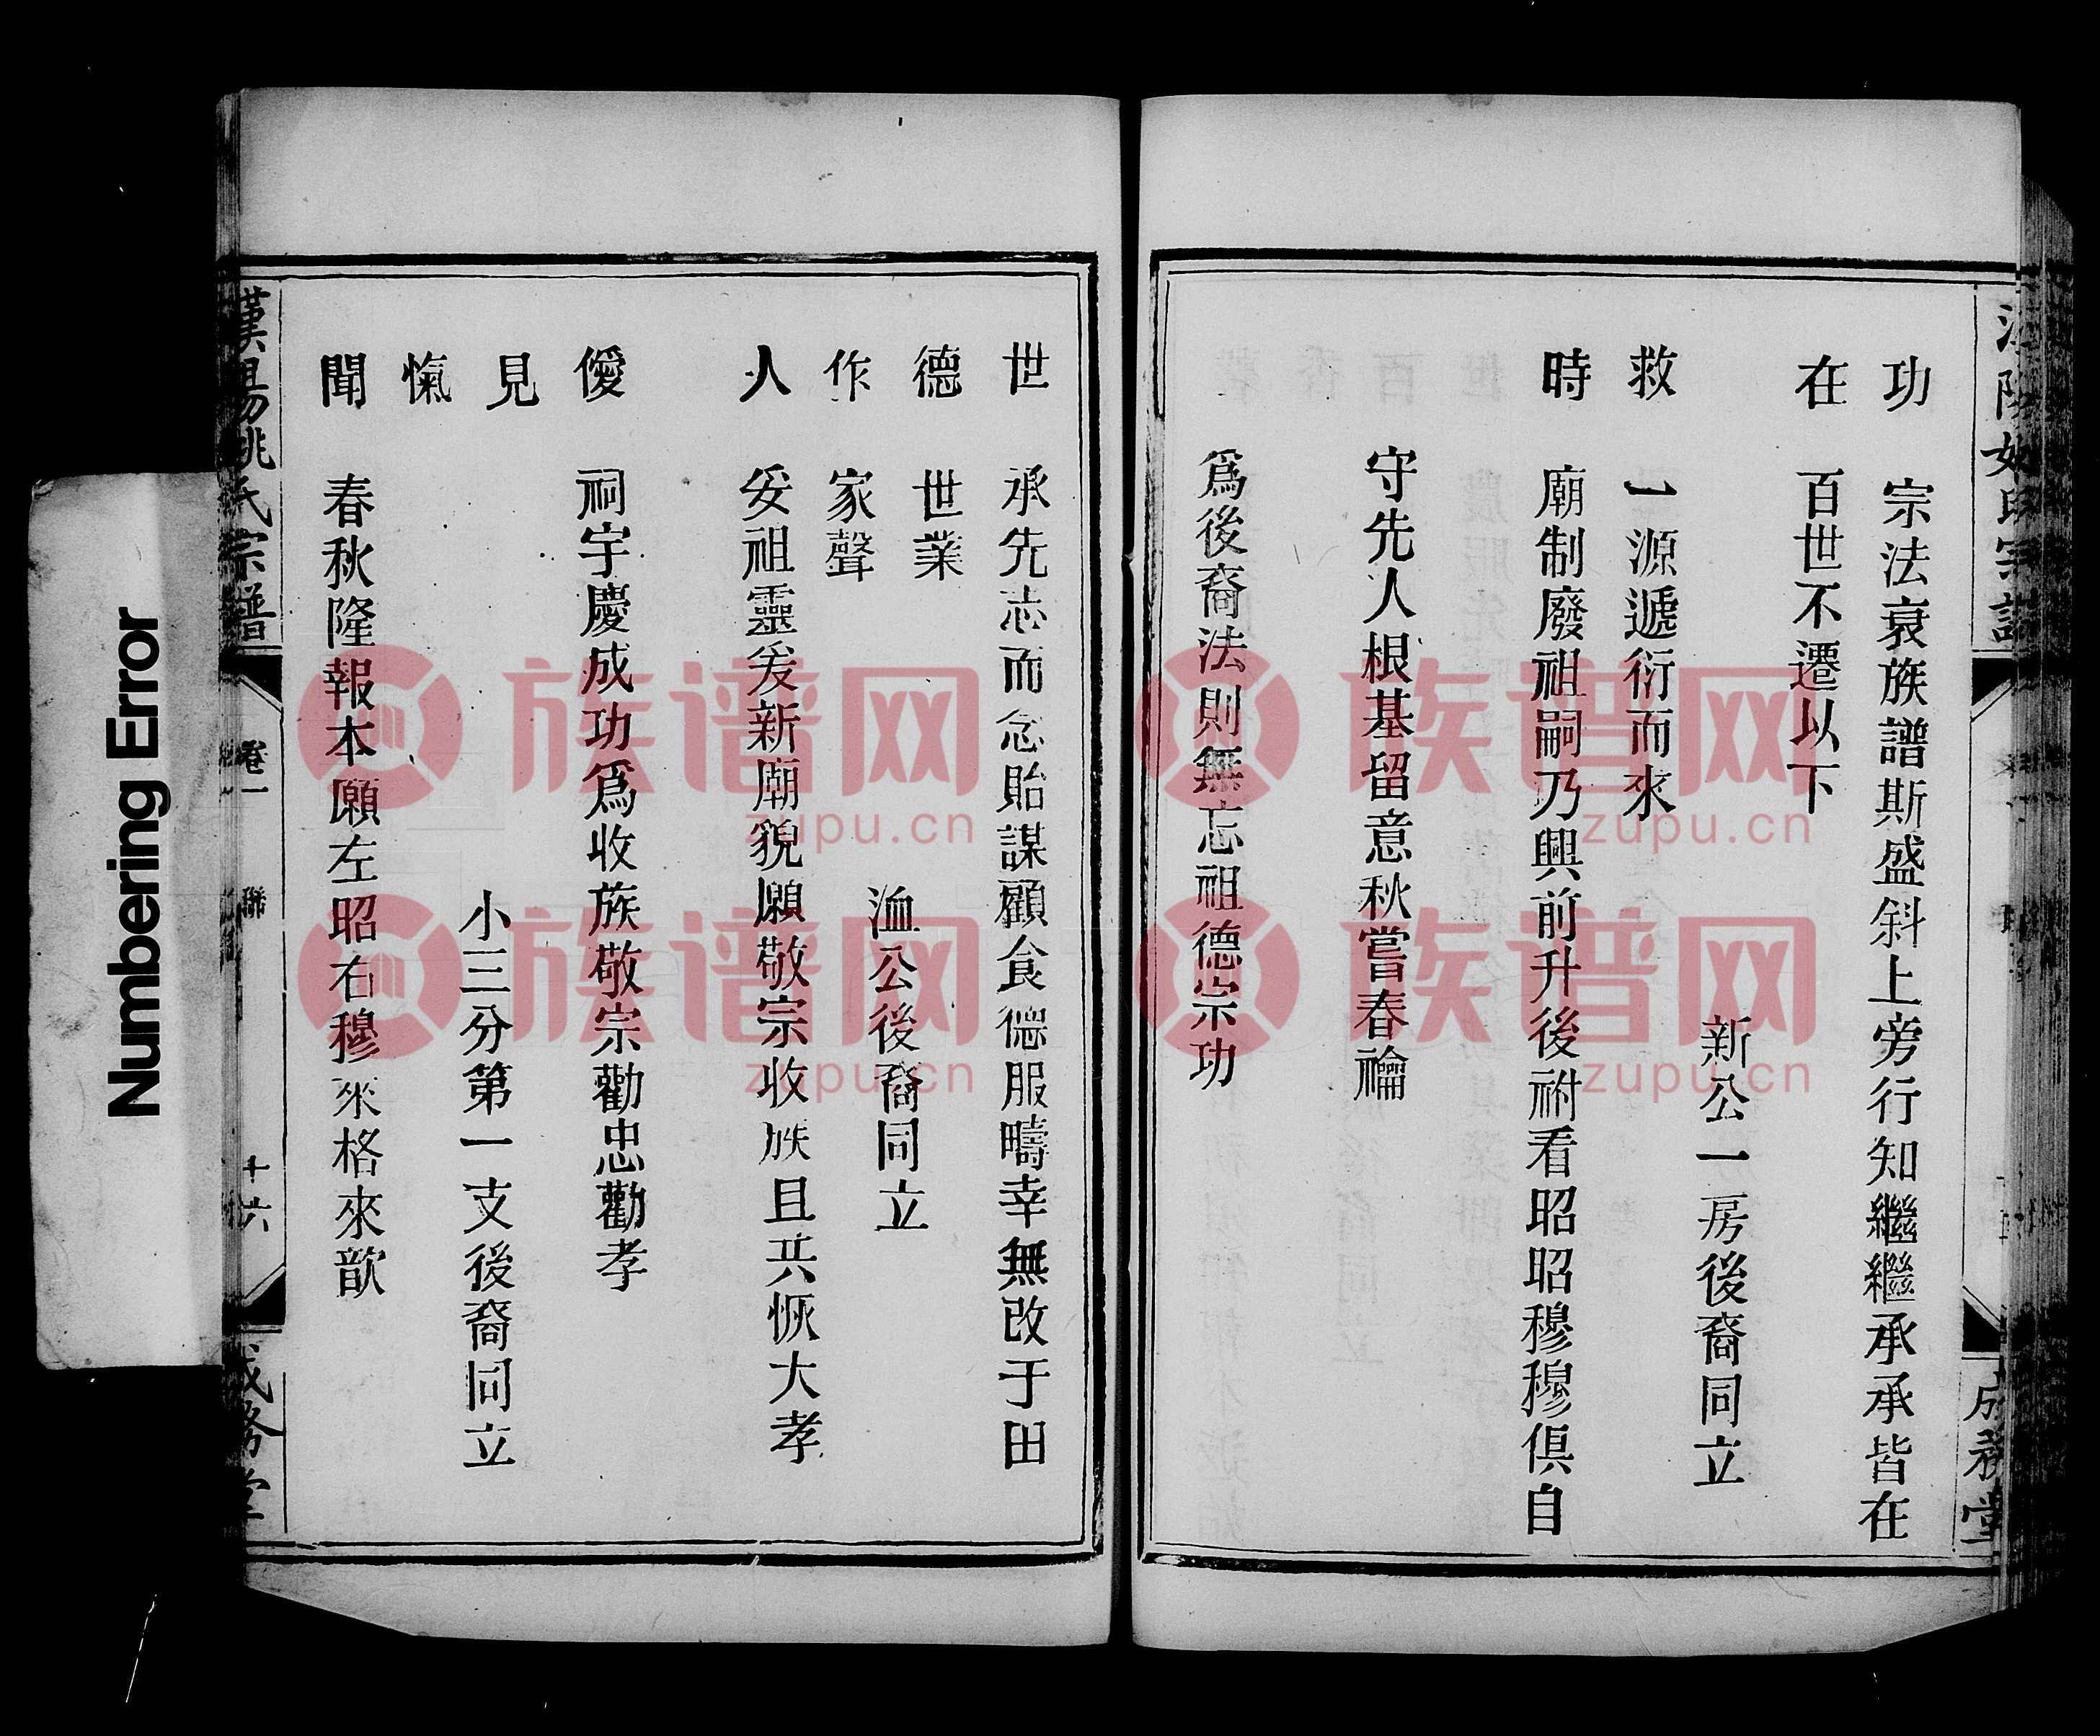 功　宗法衰族譜斯盛斜上旁行知繼繼承承皆在
在　百世不遷以下
新公一房後裔同立
救　一源遞衍而來
時　廟制廢祖嗣乃興前升後祔看昭昭穆穆俱自
守先人根基留意秋嘗春禴
爲後裔法則無忘祖德宗功
世　承先志而念貽謀顧食德服疇幸無改于田
德　世業
洫公後裔同立
作　家聲
人　妥祖靈爰新廟貌願敬宗收族且共恢大孝
僾　祠宇慶成功爲收族敬宗勸忠勸孝
見
小三分第一支後裔同立
愾
聞　春秋隆報本願左昭右穆來格來歆
漢陽姚氏宗譜　卷一　聯　十六　成務堂
Numbering Error
族谱网
zupu.cn
族谱网
zupu.cn
族谱网
zupu.cn
族谱网
zupu.cn